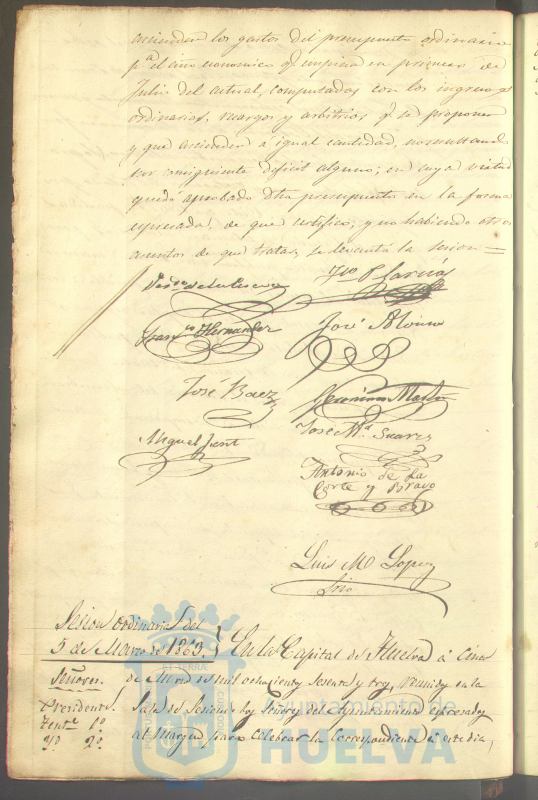 ascienden los gastos del presupuesto ordinario
pª el año economico q. empieza en primero de
Julio del actual, computadas con los ingresos
ordinarios, recargos y arbitrios, q. se proponen
y que ascienden á igual cantidad, no resultando
por consiguiente deficit alguno; en cuya virtud
quedó aprobado dho presupuesto en la forma
espresada, de que certifico; y no habiendo otros
asuntos de que tratar, se levantó la sesion=
Garcia
Franco Hernandez
José Alonso
José Baez
Geronimo Martin
Miguel
José Mª Suarez
Antonio de La
Corte y Bravo
Luis M Lopez
Srio
Sesion ordinaria del
5 de Marzo de 1863.
En la Capital de Huelva á cinco
Señores.
de Marzo de mil ochocientos sesenta y tres, reunidos en la
Presidente.
Sala de Sesiones los Señores del Ayuntamiento espresados
Tente 1º
al Margen, para celebrar la correspondiente á este dia,
Yd. 2º
Ayuntamiento de
HUELVA